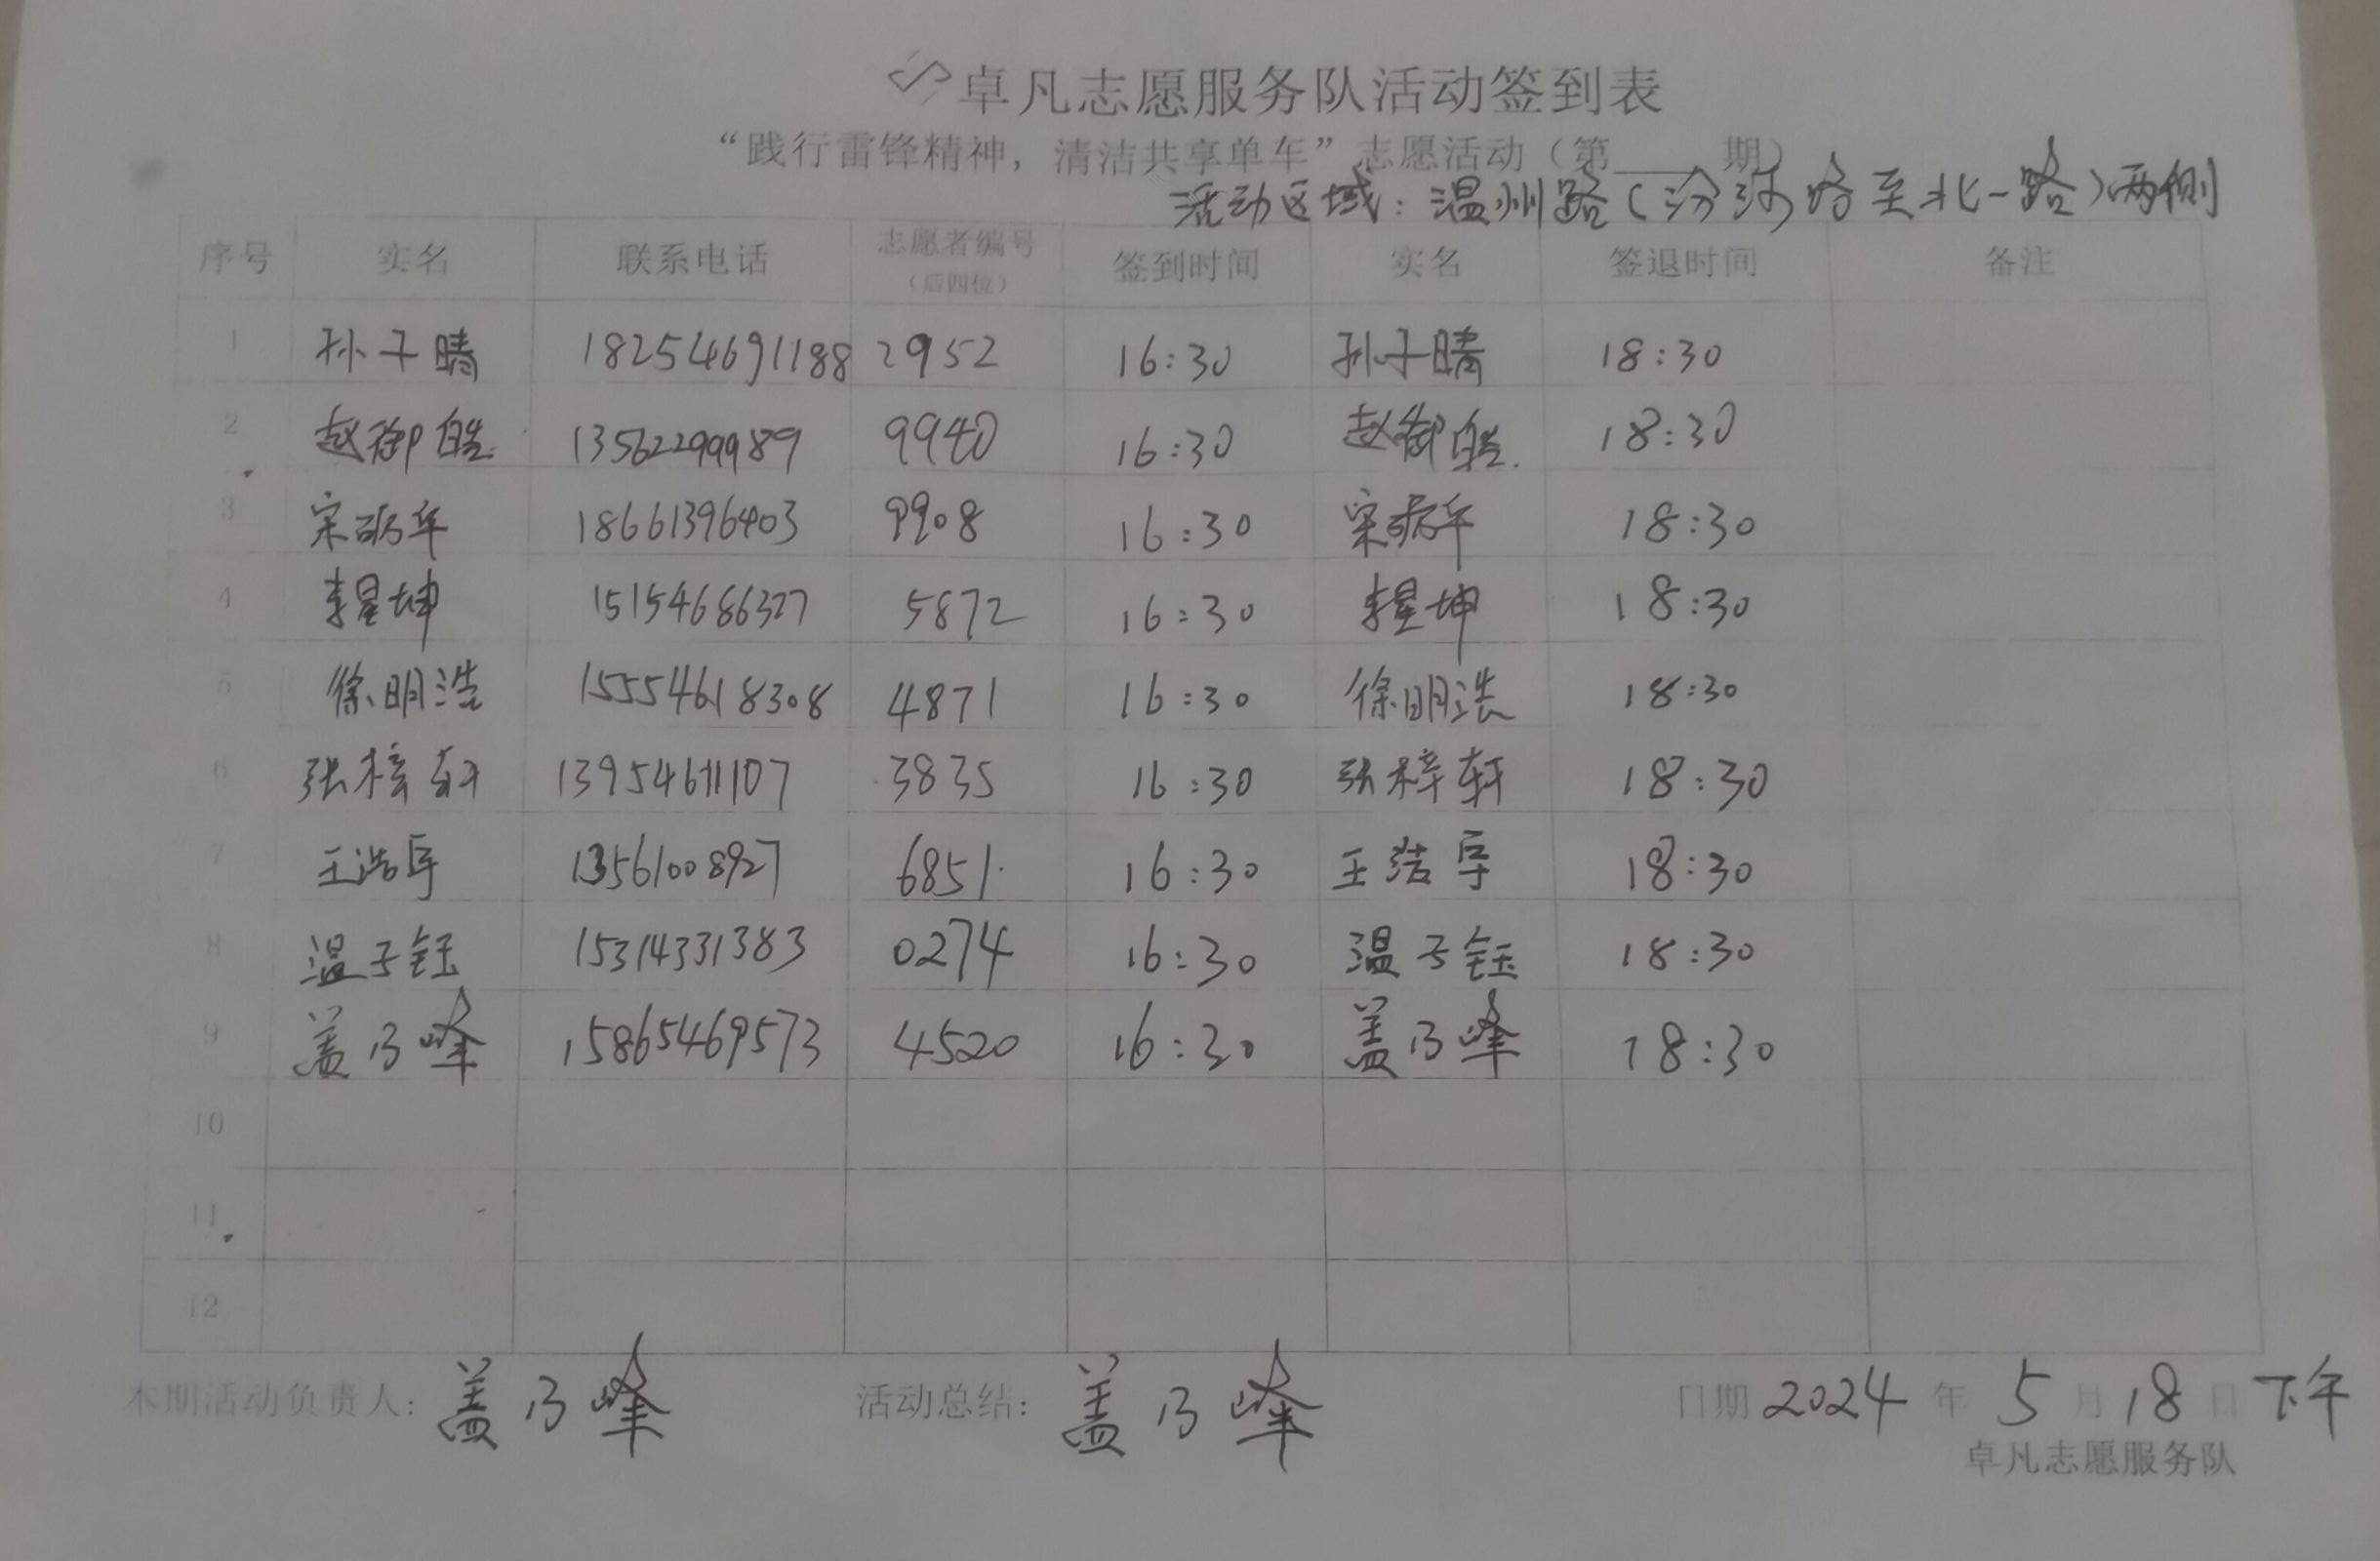 卓凡志愿服务队活动签到表
“践行雷锋精神，清洁共享单车”志愿活动（第 期）
活动区域：温州路（汾河路至北一路）两侧
序号 实名 联系电话 志愿者编号（后四位） 签到时间 实名 签退时间 备注
1 孙子晴 18254691188 2952 16:30 孙子晴 18:30
2 赵御皓 13562299989 9940 16:30 赵御皓 18:30
3 宋砺年 18661396403 9908 16:30 宋砺年 18:30
4 李星坤 15154686327 5872 16:30 李星坤 18:30
5 徐明浩 15554618308 4871 16:30 徐明浩 18:30
6 张梓轩 13954611107 3835 16:30 张梓轩 18:30
7 王浩宇 13561008927 6851 16:30 王浩宇 18:30
8 温子钰 15314331383 0274 16:30 温子钰 18:30
9 盖乃峰 15865469573 4520 16:30 盖乃峰 18:30
10
11
12
本期活动负责人：盖乃峰 活动总结：盖乃峰 日期 2024 年 5 月 18 日 下午
卓凡志愿服务队